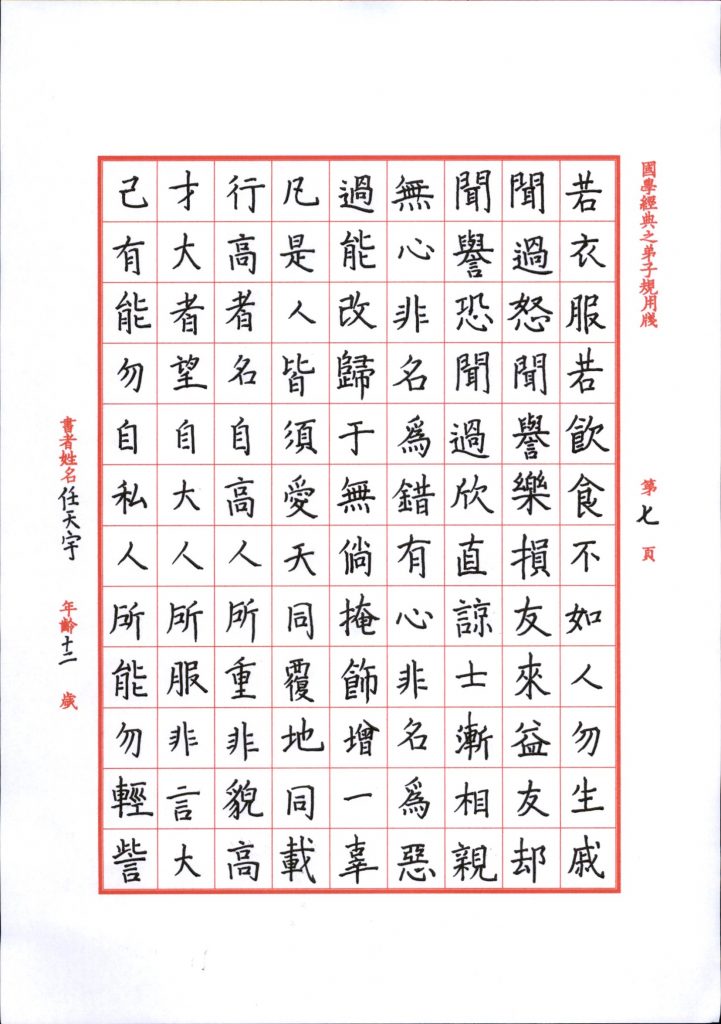 國學經典之弟子規用牋
第七頁
若衣服若飲食不如人勿生戚
聞過怒聞譽樂損友來益友却
聞譽恐聞過欣直諒士漸相親
無心非名爲錯有心非名爲惡
過能改歸于無倘掩飾增一辜
凡是人皆須愛天同覆地同載
行高者名自高人所重非貌高
才大者望自大人所服非言大
己有能勿自私人所能勿輕訾
書者姓名任天宇
年齡十二歲